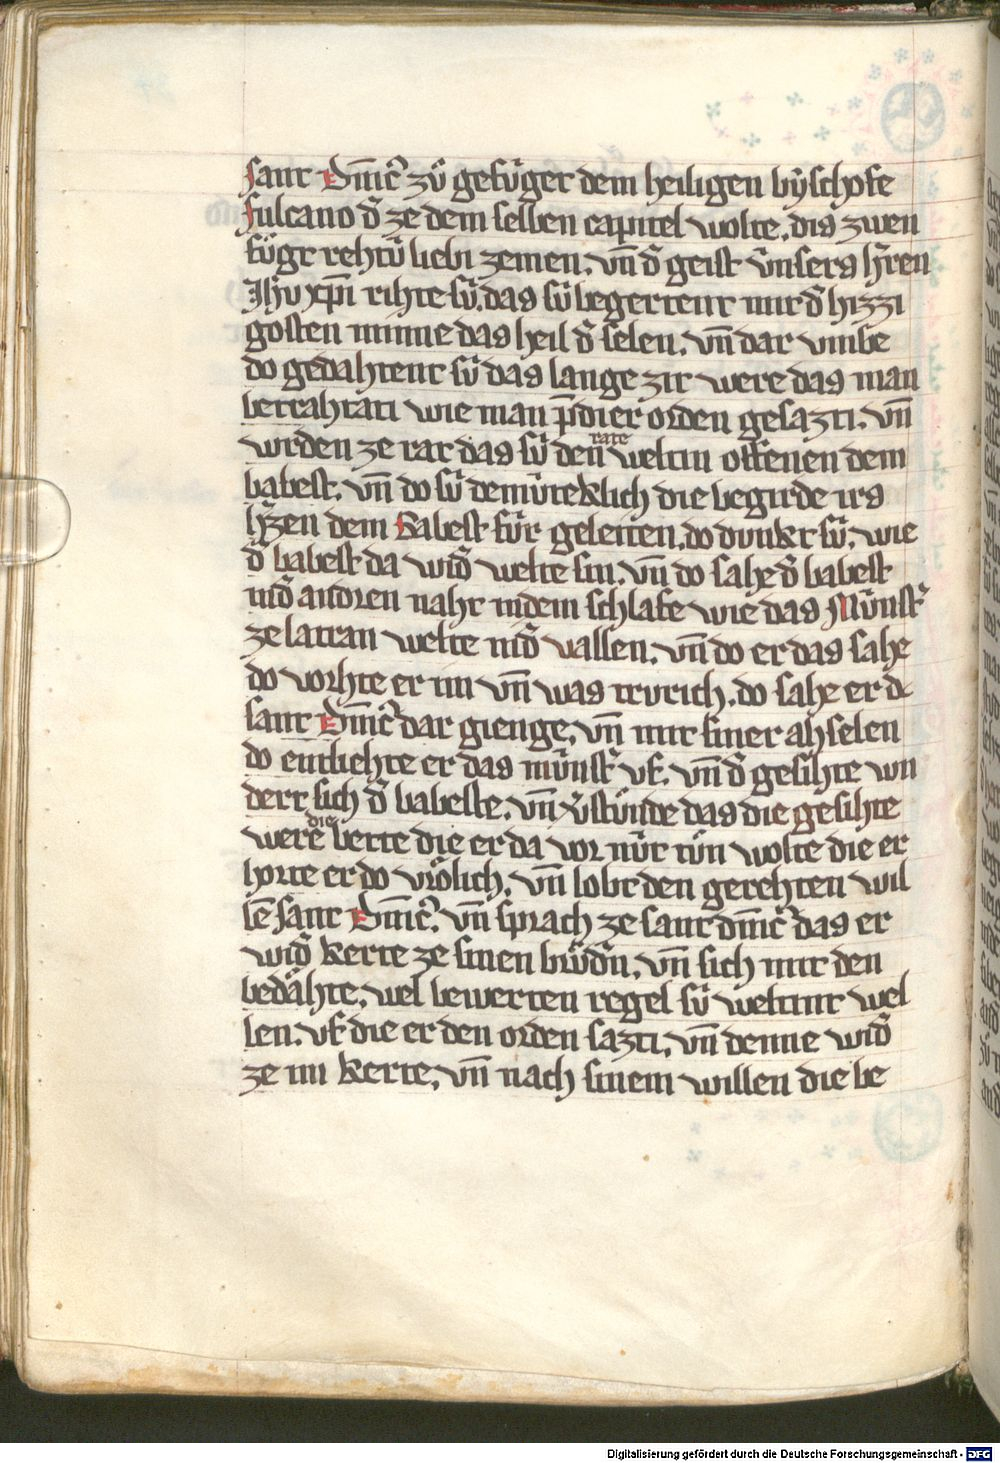 sant Dn̄icꝰ zů gefuͦger dem heiligen byͤschofe
fulcano d̕ ze dem selben capitel wolte. dis zwen
fuͤgt rehtuͥ liebi zemen. vn̄ d̕ geist vͥnsers h̕ren
Jhū xp̄i rihte suͥ. das suͥ begertent mit d̕ hizzi
gosten minne das heil d̕ selen. vn̄ dar vmbe
do gedahtent suͥ das lange zit were das man
betrahtati wie man p̄dier orden gesazti. vn̄
wrden ze rat das suͥ den rate weltin offenen dem
babest. vn̄ do suͥ demuͤteklich die begirde irs
h̕zen dem babest fuͥr geleiten. do dunkt suͥ. wie
d̕ babest da wid̕ welte sin. vn̄ do sahe d̕ babest
nid̕ andren naht indem schlafe wie das Muͥnst̕
ze latran welte nid̕ vallen. vn̄ do er das sahe
do vorhte er im vn̄ was trvrich. do sahe er dc
sant Dn̄icꝰ dar gienge. vn̄ mit siner ahselen
do entliehte er das muͥnst̕ vf. vn̄ d̕ gesihte wn
dert sich d̕ babeste. vn̄ v̕stuͤnde das die gesihte
were die bette die er da vor nuͥt tuͦn wolte die er
horte er do vroͤlich. vn̄ lobt den gerehten wil
lē sant Dn̄icꝰ. vn̄ sprach ze sant dn̄icꝰ das er
wid̕ kerte ze sinen bruͤd̕n. vn̄ sich mit den
bedaͤhte. wel bewerten regel suͥ weltint wel
len. vf die er den orden sazti. vn̄ denne wid̕
ze im kerte. vn̄ nach sinem willen die be
Digitalisierung gefördert durch die Deutsche Forschungsgemeinschaft - DFG